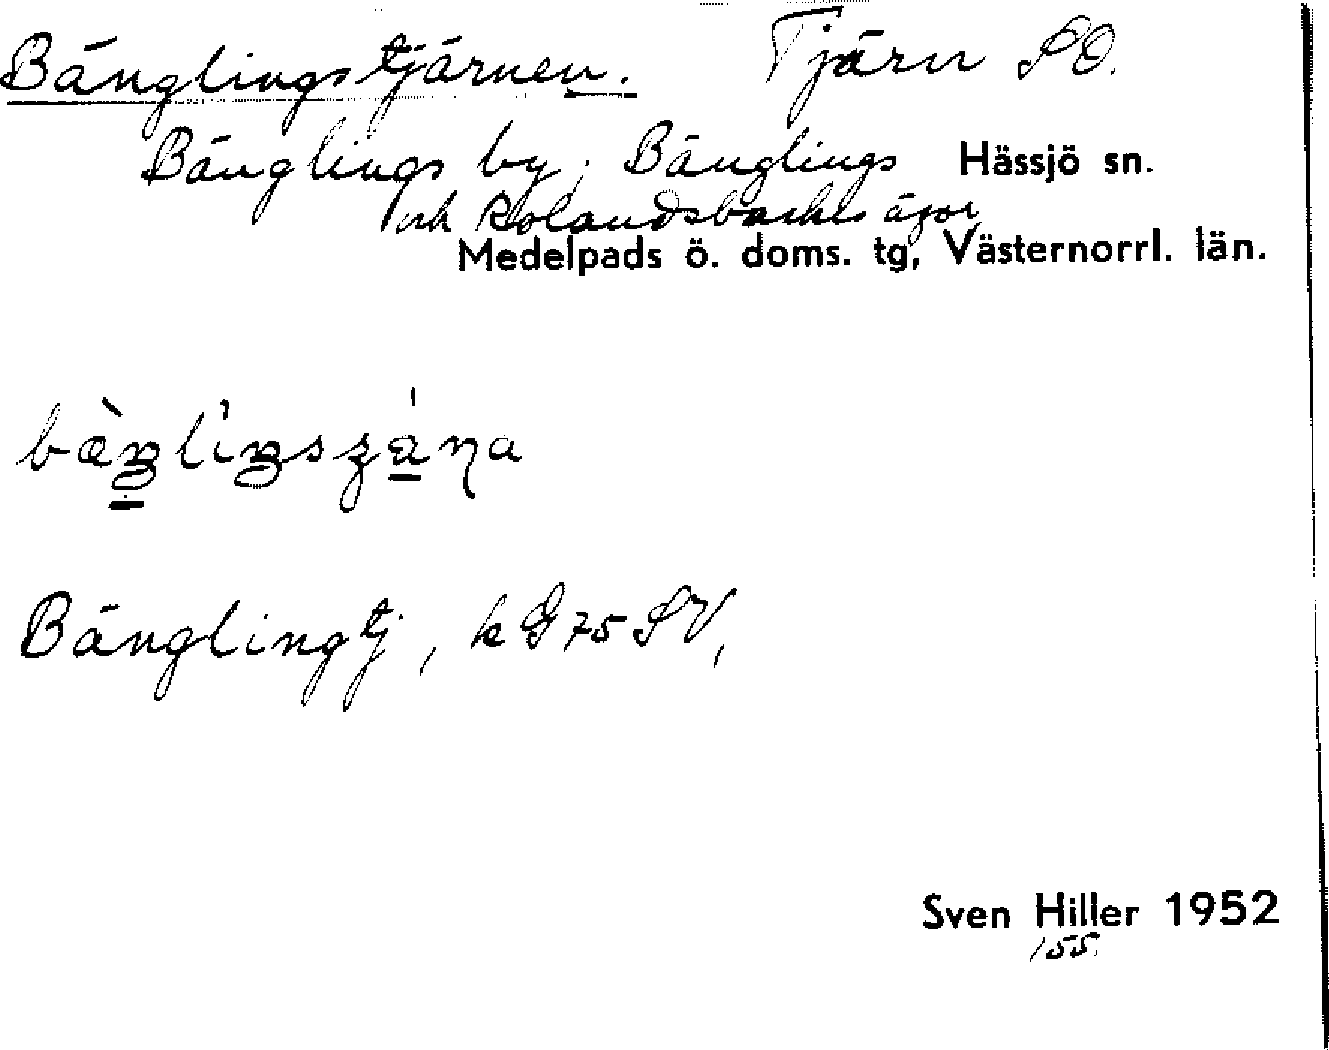 Bänglingstjärnen. Tjärn SO.
Bänglings by; Bänglings Hässjö sn.
och Rolandsbackes ägor
Medelpads ö. doms. tg, Västernorrl. län.
Bänglingtj, kG75SV,
Sven Hiller 1952
155.